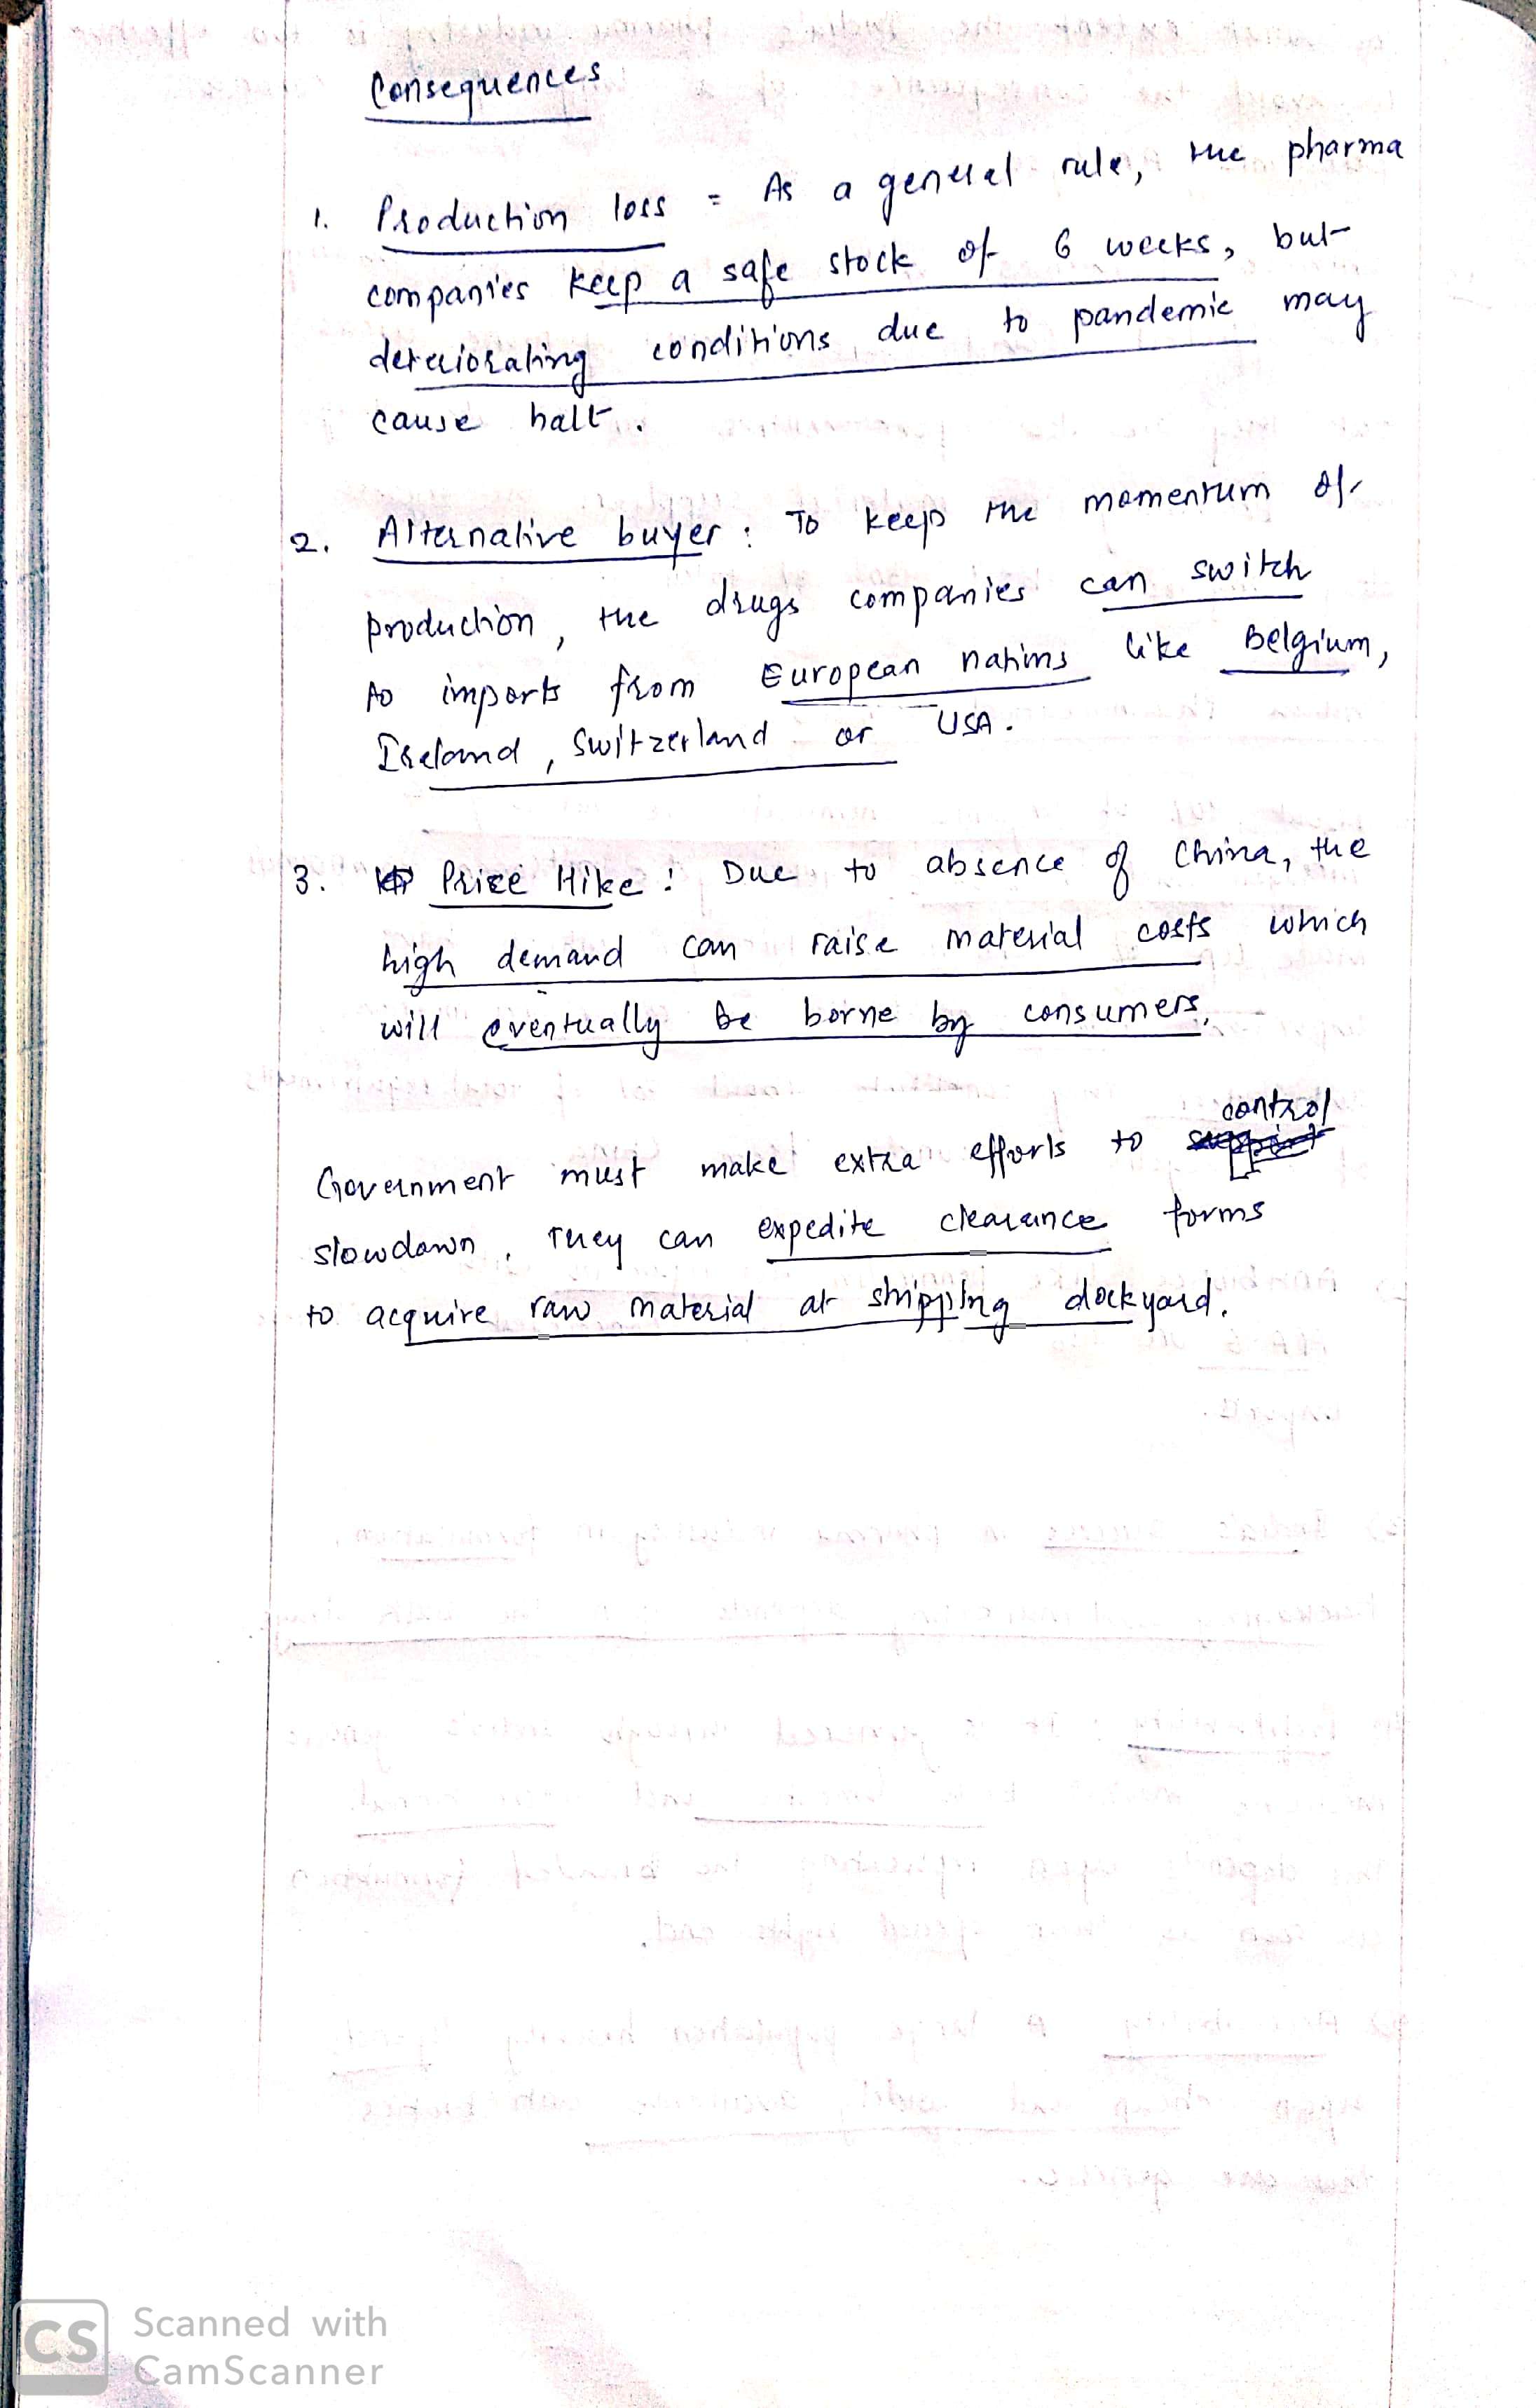 Consequences
1. Production loss = As a general rule, the pharma
companies keep a safe stock of 6 weeks, but
deteriorating conditions due to pandemic may
cause halt.
2. Alternative buyer : To keep the momentum of
production, the drugs companies can switch
to imports from European nations like Belgium,
Ireland, Switzerland or USA.
3. Price Hike : Due to absence of China, the
high demand can raise material costs which
will eventually be borne by consumers.
control
Government must make extra efforts to
slowdown. They can expedite clearance forms
to acquire raw material at shipping dockyard.
CS Scanned with
CamScanner